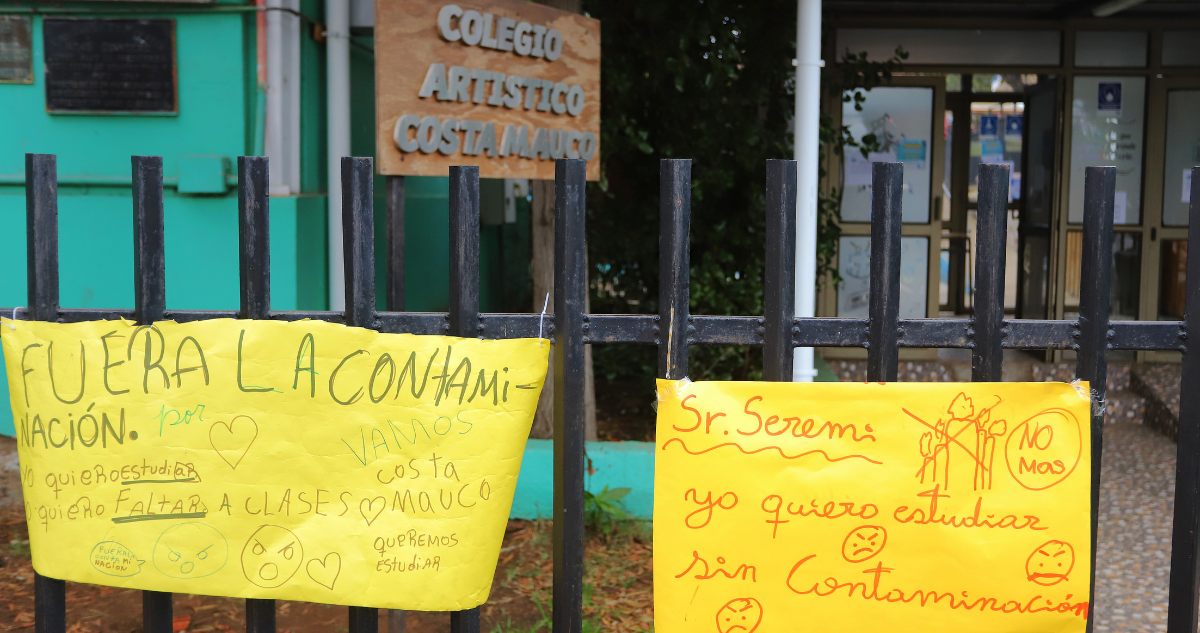 COLEGIO
ARTISTICO
COSTA MAUCO
FUERA LA CONTAMI-
NACIÓN. por
VAMOS
costa
MAUCO
quiero estudiar
quiero FALTAR A CLASES
QUEREMOS
EStudiAR
FUERA LA
CONTAMI
NACIÓN
Sr. Seremi
NO
MAS
yo quiero estudiar
sin Contaminación